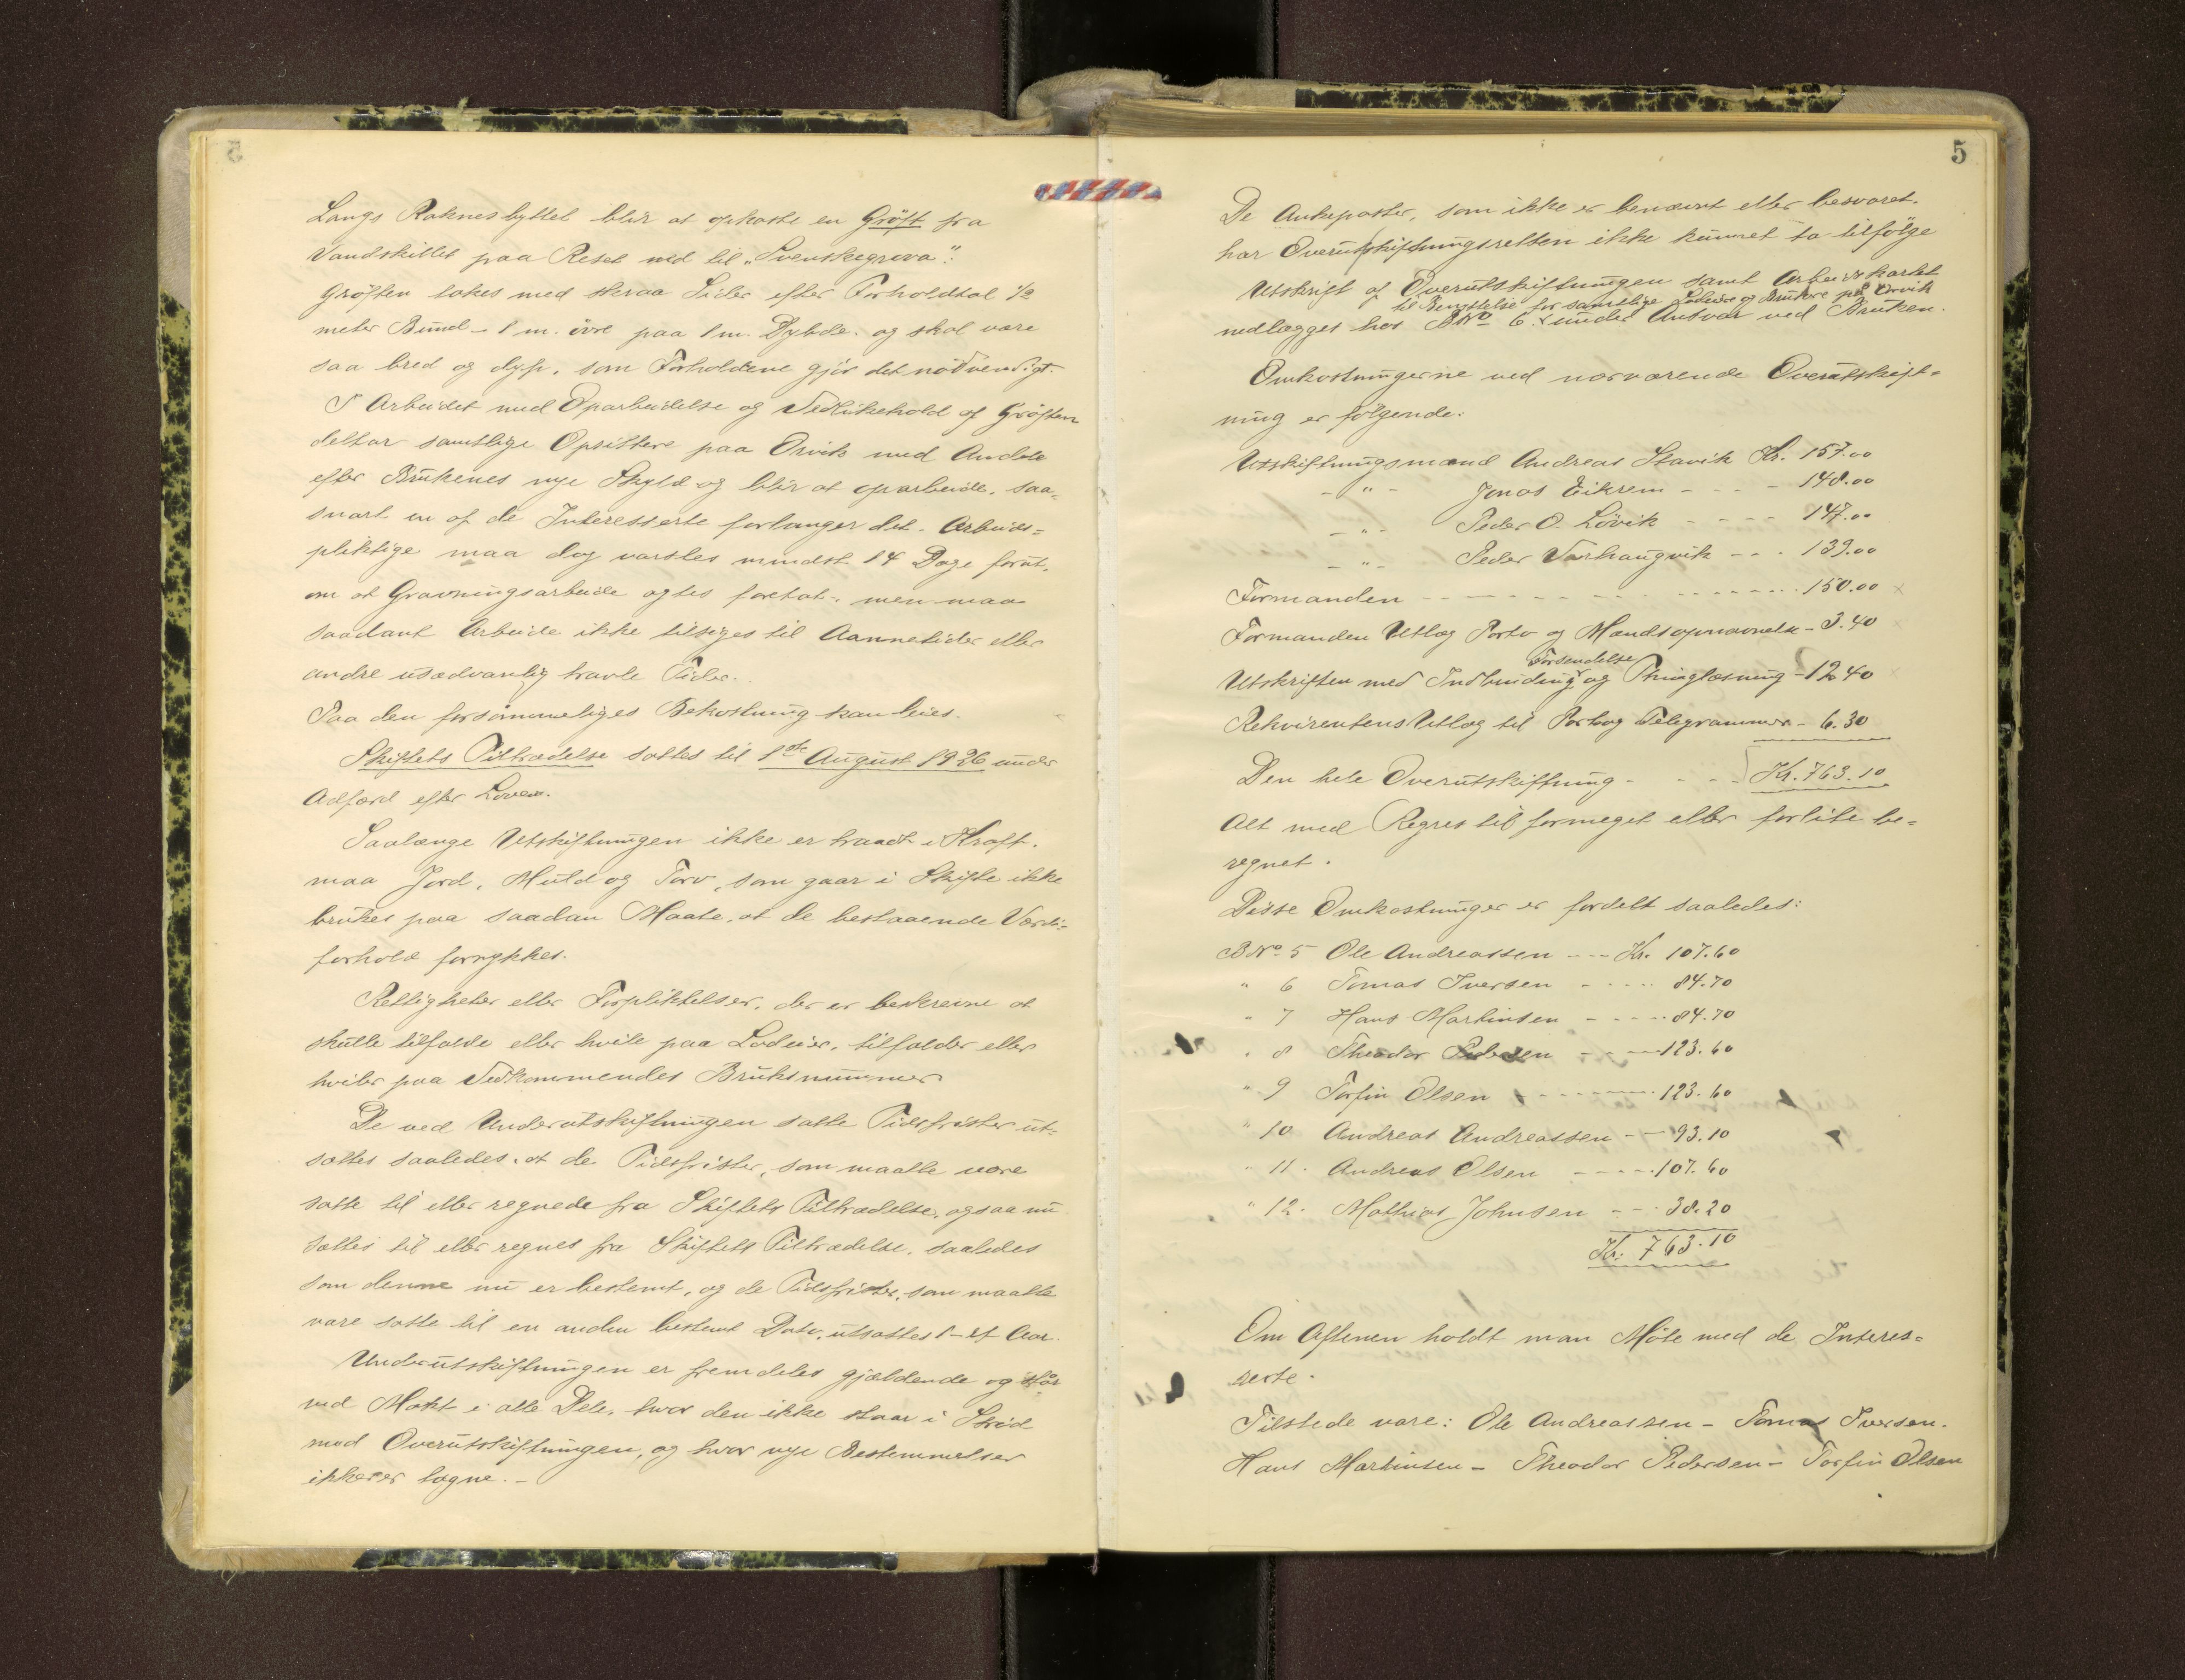 Langs Raknesbyttet blir at opkaste en Grøft fra
Vandskillet paa Reset ned til "Svenskegrova".
Grøften takes med skraa Sider efter Forholdtal 1/2
meter Bund - 1 m. øvre paa 1 m. Dybde. og skal være
saa bred og dyp, som Forholdene gjør det nødvendigt.
I Arbeidet med Oparbeidelse og Vedlikehold af Grøften
deltar samtlige Opsittere paa Orvik med Andele
efter Brukenes nye Skyld og blir at oparbeide, saa-
snart en af de Interesserte forlanger det. Arbeids-
pliktige maa dog varsles mindst 14 Dage forut,
om at Gravningsarbeide agtes foretat, men maa
saadant Arbeide ikke tilsiges til Aannetider eller
andre usædvanlig travle Tider.
Paa den forsømmeliges Bekostning kan leies.
Skiftets Tiltrædelse sættes til 1ste August 1926 under
Adfærd efter Loven.
Saalænge Utskiftningen ikke er traadt i Kraft,
maa Jord, Muld og Torv, som gaar i Skifte ikke
brukes paa saadan Maate, at de bestaaende Værdi-
forhold forrykkes.
Rettigheter eller Forpliktelser, der er beskrevne at
skulle tilfalde eller hvile paa Lodeier, tilfalder eller
hviler paa Vedkommendes Bruksnummer
De ved Underutskiftningen satte Tidsfrister ut-
sættes saaledes, at de Tidsfrister, som maatte være
satte til eller regnede fra Skiftets Tiltrædelse, ogsaa nu
sættes til eller regnes fra Skiftets Tiltrædelse, saaledes
som denne nu er bestemt, og de Tidsfrister, som maatte
være satte til en anden bestemt Dato, utsættes 1 - et Aar.
Underutskiftningen er fremdeles gjældende og står
ved Makt i alle Dele, hvor den ikke staar i Strid
mod Overutskiftningen, og hvor nye Bestemmelser
ikke er tagne. -
5
De Ankeposter, som ikke er benævnt eller besvaret.
har Overutskiftningsretten ikke kunnet ta tilfølge
Utskrift af Overutskiftningen samt Arbeidskartet
til Benyttelse for samtlige Lodeiere og Brukere på Orvik
nedlægges hos BNo 6. under Ansvar ved Bruken.
Omkostningerne ved nærværende Overutskift-
ning er følgende:
Utskiftningsmænd Andreas Stavik Kr. 157.00
- " - Jonas Eikrem - - - 148.00
- " - Peder O. Løvik - - - - 147.00
- " - Peder Varhaugvik - - . 139.00
Formanden - - - - - - - - - - 150.00 x
Formanden Utlæg Porto og Mandsopnævnelse - 3.40
Forsendelse
Utskriften med Indbinding og Thinglæsning - 12.40
Rekvirentens Utlæg til Porto og Telegrammer - 6.30
Den hele Overutskiftning - - - - Kr. 763.10
Alt med Regres til formeget eller forlite be-
regnet.
Disse Omkostninger er fordelt saaledes:
BNo 5 Ole Andreassen - - - Kr. 107.60
" 6 Tomas Iversen - - - - 84.70
" 7 Hans Martinsen - - - - 84.70
" 8 Theodor Pedersen - - - 123.60
" 9 Torfin Olsen - - - - - 123.60
" 10 Andreas Andreassen - - 93.10
" 11. Andreas Olsen - - - - 107.60
" 12. Mathias Johnsen - - 38.20
Kr. 763.10
Om Aftenen holdt man Møte med de Interes-
serte.
Tilstede vare: Ole Andreassen - Tomas Iversen.
Hans Martinsen - Theodor Pedersen - Torfin Olsen